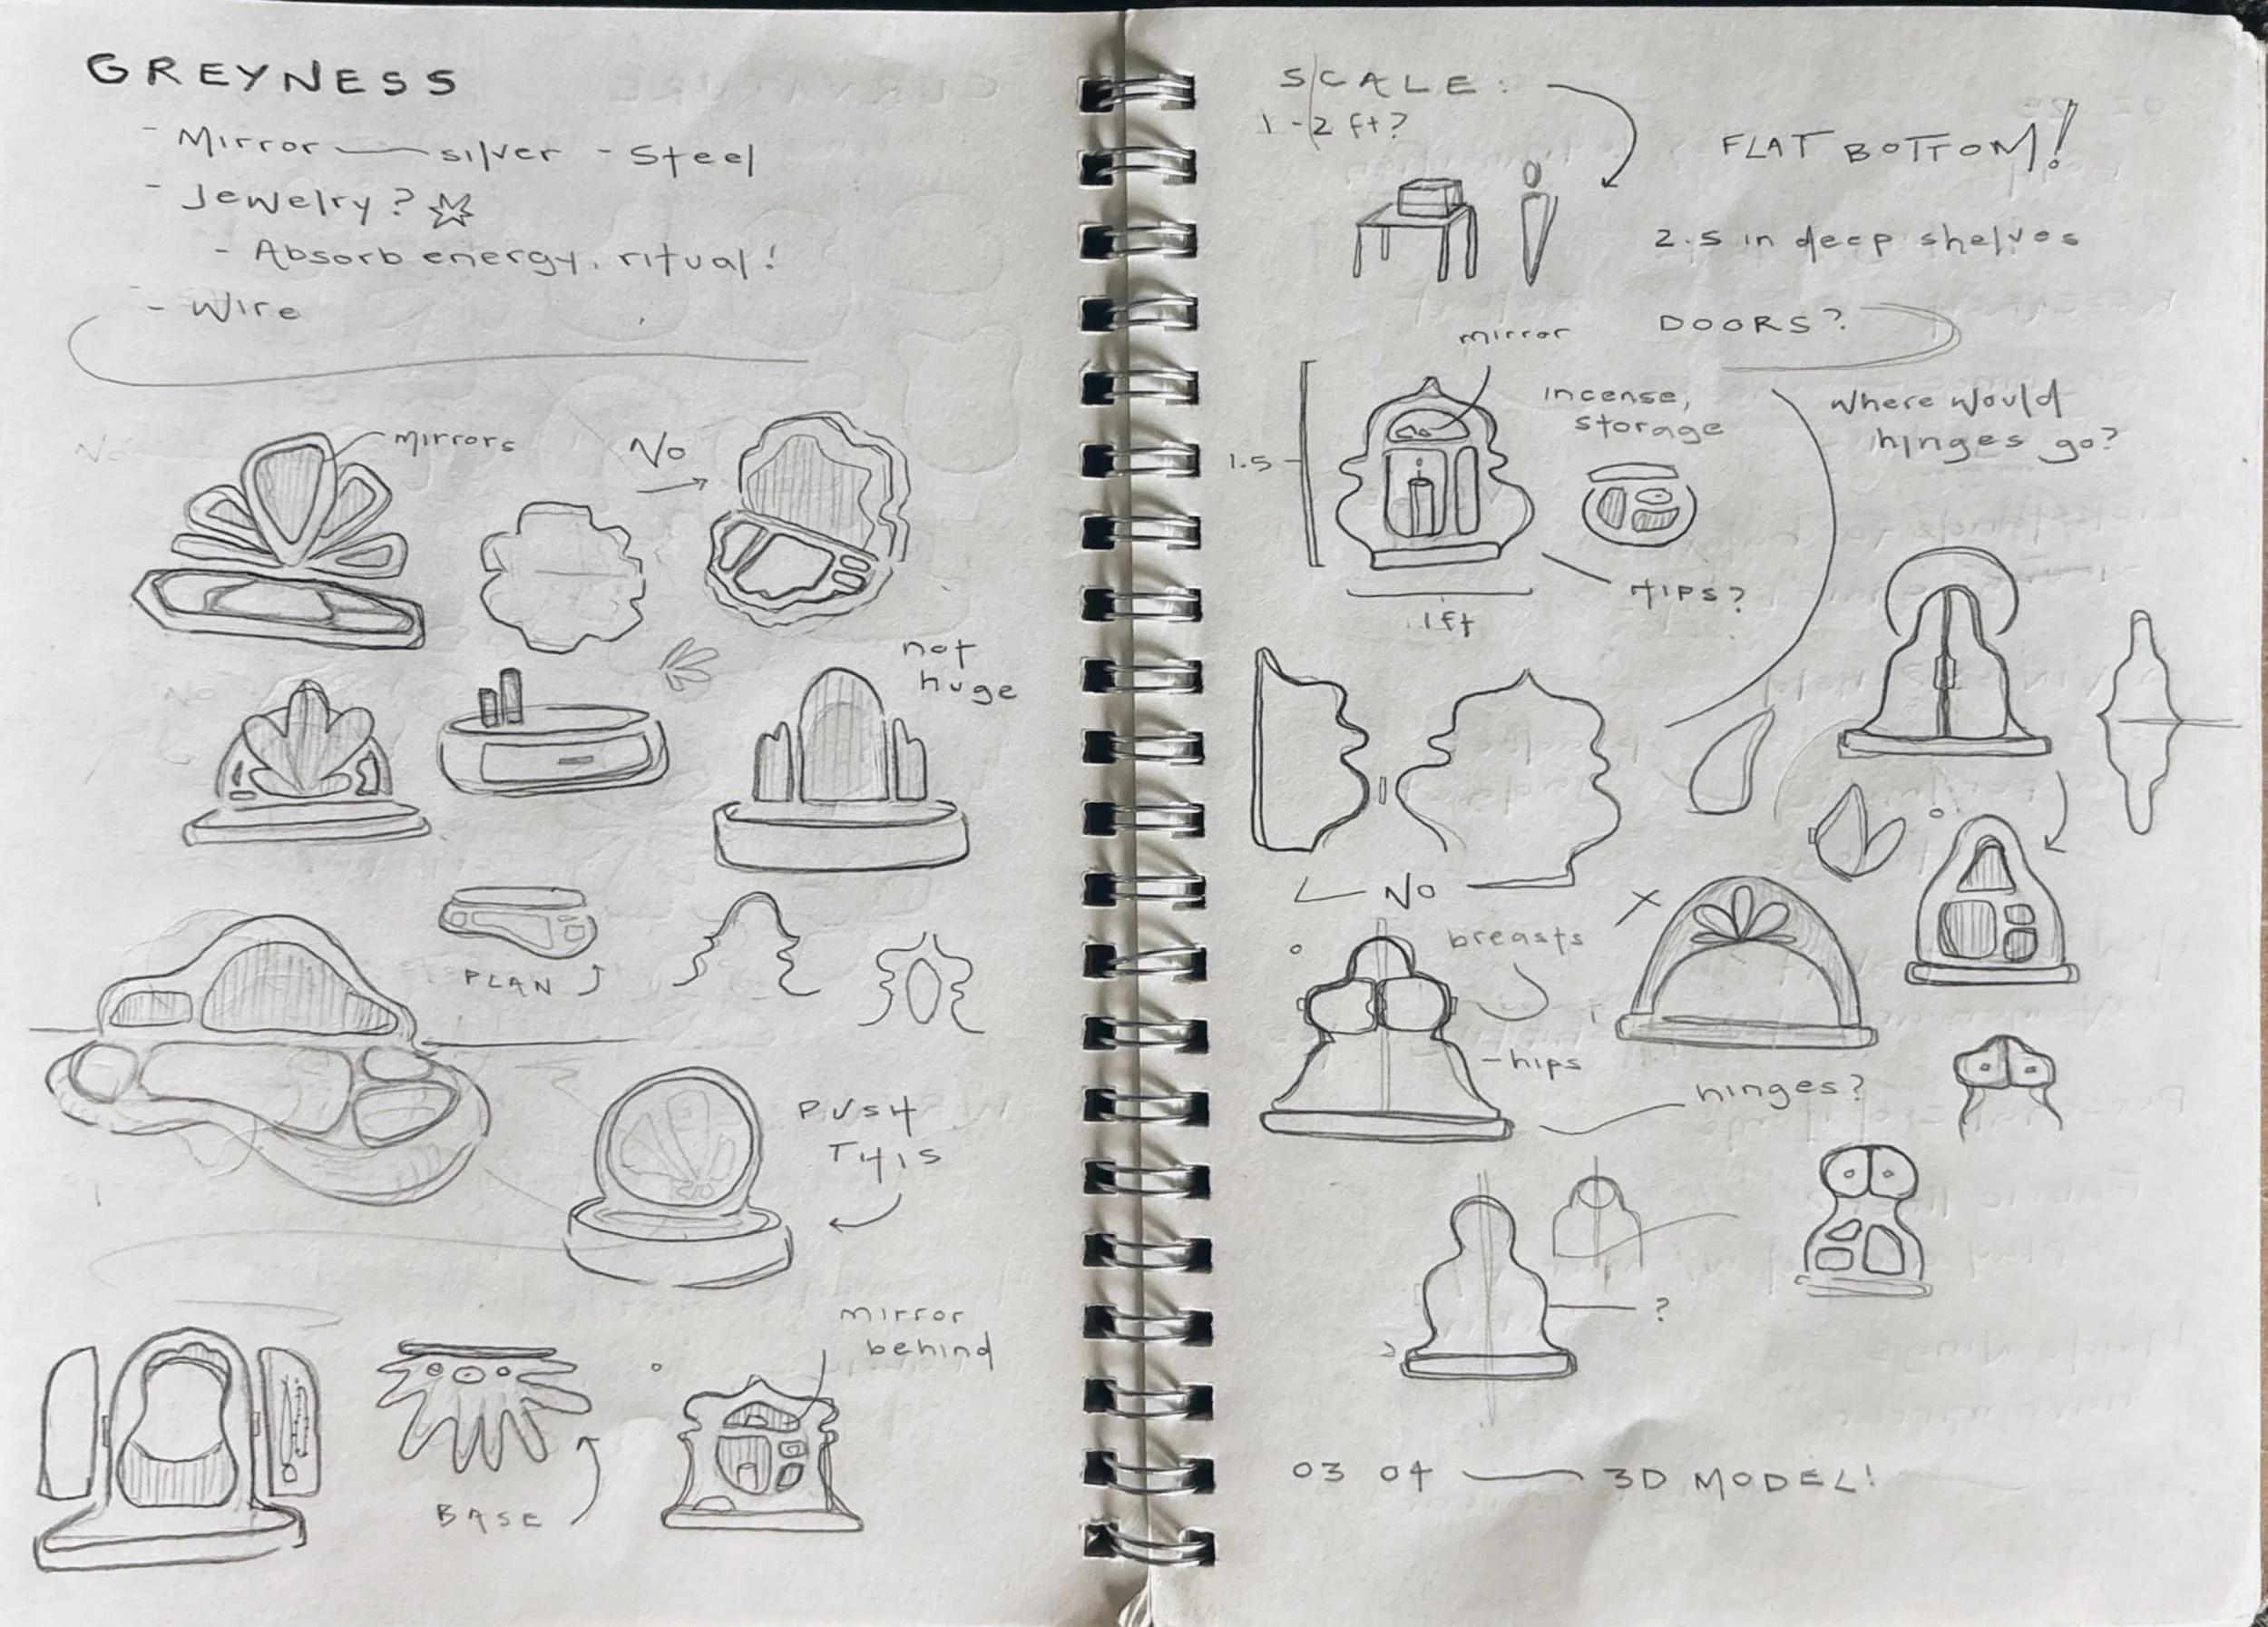 GREYNESS
- Mirror — silver - Steel
- Jewelry? ☆
- Absorb energy, ritual!
- Wire
mirrors
No
not
huge
PLAN
PUSH
THIS
mirror
behind
BASE
SCALE:
1-2 ft?
FLAT BOTTOM!
2.5 in deep shelves
DOORS?
mirror
incense,
storage
where would
hinges go?
1.5
HIPS?
1ft
No
breasts
- hips
hinges?
?
03 04 — 3D MODEL!